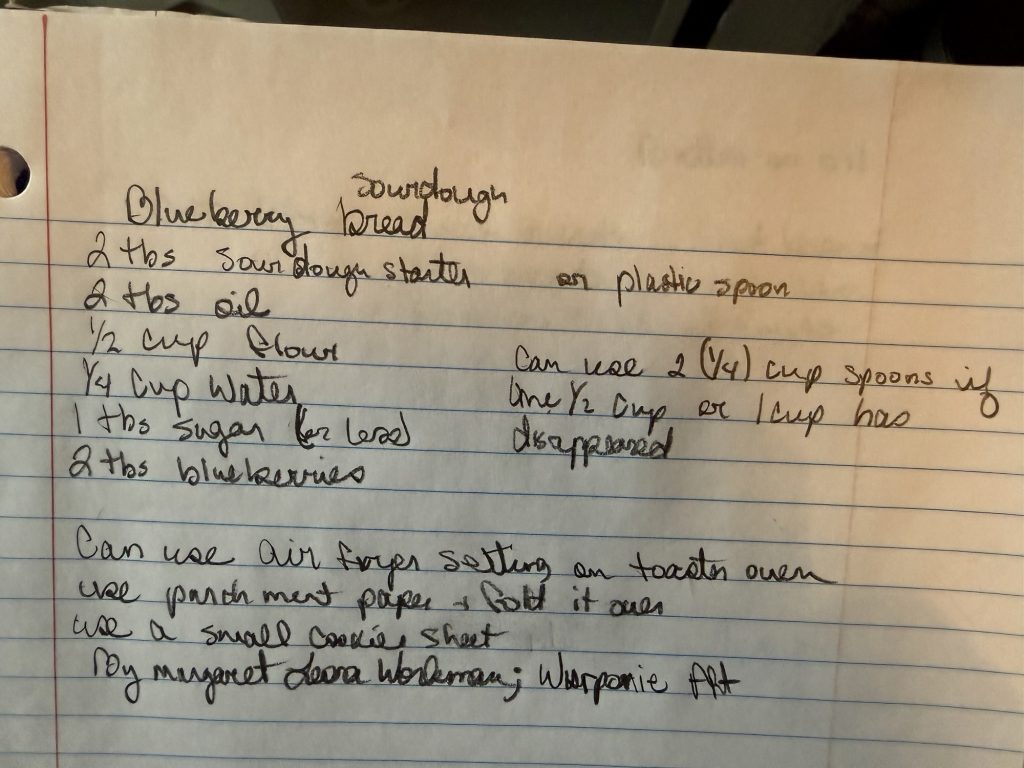 sourdough
Blueberry bread
2 tbs sourdough starter on plastic spoon
2 tbs oil
1/2 cup flour
Can use 2 (1/4) cup spoons if
1/4 cup water
line 1/2 cup or 1 cup has
1 tbs sugar (or less)
disappeared
2 tbs blueberries
Can use air fryer setting on toaster oven
use parchment paper + fold it over
use a small cookie sheet
By margaret Workman;